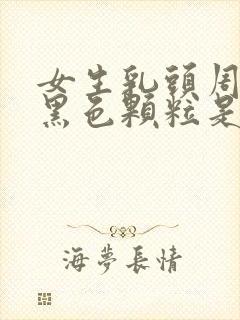 女生乳頭周
黑色顆粒是
海夢長情